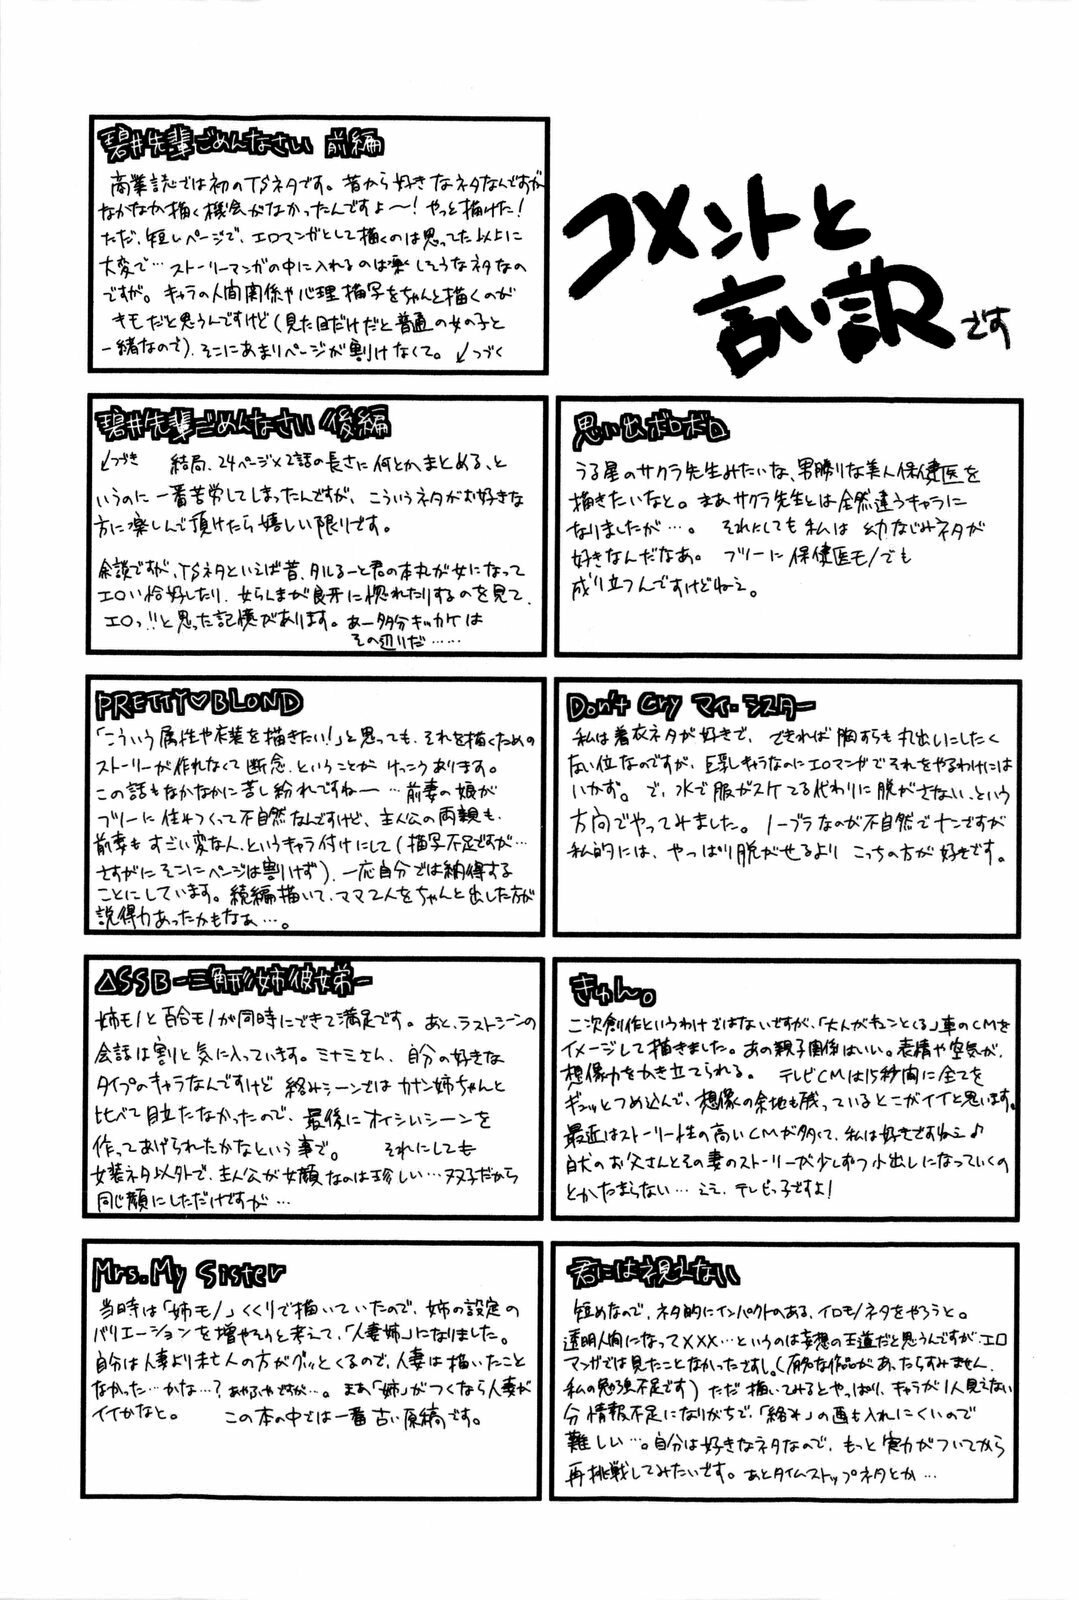 コメントと
言い訳です
碧井先輩ごめんなさい 前編
商業誌では初のTSネタです。昔から好きなネタなんですが
なかなか描く機会がなかったんですよ〜!やっと描けた!
ただ、短いページで、エロマンガとして描くのは思ってた以上に
大変で…ストーリーマンガの中に入れるのは楽しそうなネタなの
ですが。キャラの人間関係や心理描写をちゃんと描くのが
キモだと思うんですけど(見た目だけだと普通の女の子と
一緒なので)、そこにあまりページが割けなくて。↙つづく
碧井先輩ごめんなさい 後編
↙つづき 結局、24ページ×2話の長さに何とかまとめる、と
いうのに一番苦労してしまったんですが、こういうネタがお好きな
方に楽しんで頂けたら嬉しい限りです。
余談ですが、TSネタといえば昔、タルるート君の本丸が女になって
エロい恰好したり、女らんまが良牙に惚れたりするのを見て、
エロっ!!と思った記憶があります。あー多分キッカケは
その辺りだ……
思い出ボロボロ
うる星のサクラ先生みたいな、男勝りな美人保健医を
描きたいなと。まあサクラ先生とは全然違うキャラに
なりましたが…。それにしても私は幼なじみネタが
好きなんだなあ。フツーに保健医モノでも
成り立つんですけどねえ。
PRETTY♡BLOND
「こういう属性や衣装を描きたい!」と思っても、それを描くための
ストーリーが作れなくて断念、ということがけっこうあります。
この話もなかなかに苦し紛れですね〜…前妻の娘が
フツーに住みつくって不自然なんですけど、主人公の両親も、
前妻もすごい変な人、というキャラ付けにして(描写不足ですが…
さすがにそこにページは割けず)、一応自分では納得する
ことにしています。続編描いて、ママ2人をちゃんと出した方が
説得力あったかもなぁ…。
Don't Cry マイ・シスター
私は着衣ネタが好きで、できれば胸すらも丸出しにしたく
ない位なのですが、巨乳キャラなのにエロマンガでそれをやるわけには
いかず。で、水で服がスケてる代わりに脱がさない、という
方向でやってみました。ノーブラなのが不自然でナンですが
私的には、やっぱり脱がせるよりこっちの方が好きです。
△SSB-三角形姉彼妹-
姉モノと百合モノが同時にできて満足です。あと、ラストシーンの
会話は割と気に入っています。ミナミさん、自分の好きな
タイプのキャラなんですけど絡みシーンではカナン姉ちゃんと
比べて目立たなかったので、最後にオイシいシーンを
作ってあげられたかなという事で。それにしても
女装ネタ以外で、主人公が女顔なのは珍しい…双子だから
同じ顔にしただけですが…
きゅん。
二次創作というわけではないですが、「大人がキュンとくる」車のCMを
イメージして描きました。あの親子関係はいい。表情や空気が、
想像力をかき立てられる。テレビCMは15秒間に全てを
ギュッとつめ込んで、想像の余地も残っているとこがイイと思います。
最近はストーリー性の高いCMが多くて、私は好きですねえ♪
白犬のお父さんとその妻のストーリーが少しずつ小出しになっていくの
とかたまらない…ええ、テレビっ子ですよ!
Mrs.My Sister
当時は「姉モノ」くくりで描いていたので、姉の設定の
バリエーションを増やそうと考えて、「人妻姉」になりました。
自分は人妻より未亡人の方がグッとくるので、人妻は描いたこと
なかった…かな…?あやふやですが…。まあ「姉」がつくなら人妻が
イイかなと。この本の中では一番古い原稿です。
君には視えない
短めなので、ネタ的にインパクトのある、イロモノネタをやろうと。
透明人間になって×××…というのは妄想の王道だと思うんですが、エロ
マンガでは見たことなかったですし。(有名な作品があったらすみません、
私の勉強不足です)ただ描いてみるとやっぱり、キャラが1人見えない
分情報不足になりがちで、「絡み」の画も入れにくいので
難しい…。自分は好きなネタなので、もっと実力がついてから
再挑戦してみたいです。あとタイムストップネタとか…